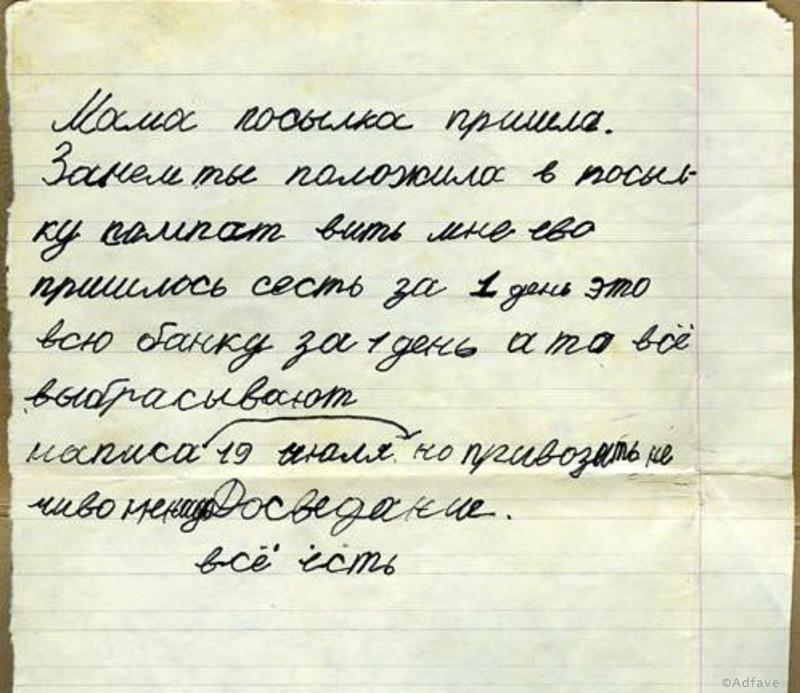 Мама посылка пришла.
Зачем ты положила в посыл-
ку компот вить мне ево
пришлось сесть за 1 день это
всю банку за 1 день а то всё
выбрасывают
написа 19 июля но привозить не
чиво не Досведание.
всё есть
©Adfave